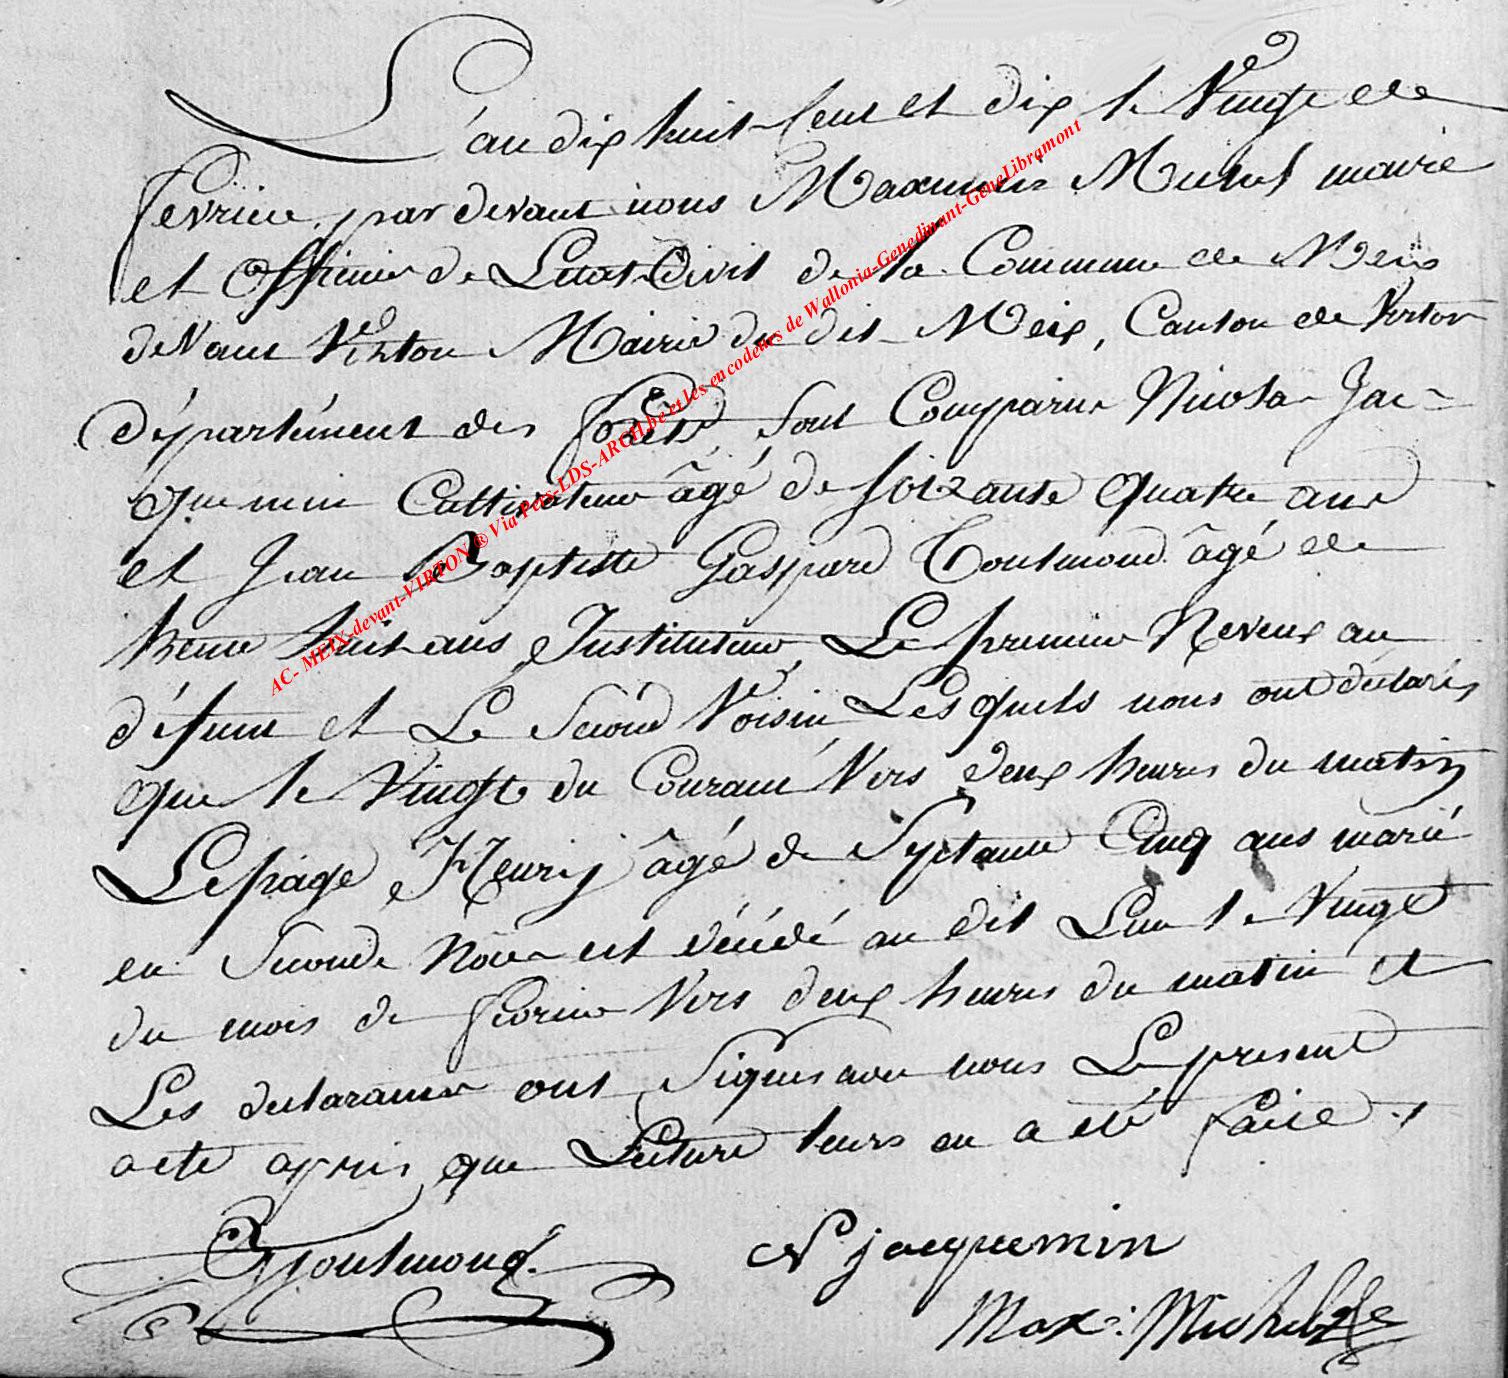 L'an dix huit Cent et dix le Vingt de
fevrier par devant nous Maximin Michel maire
et Officier de L'etat Civil de la Commune de Meix
devant Virton Mairie du dit Meix, Canton de Virton
département des forêts, sont Comparus Nicolas Jac-
quemin Cultivateur âgé de soixante quatre ans
et Jean Baptiste Gaspard Toutmond âgé de
trente huit ans Instituteur, Le premier Neveux au
défunt et Le Second Voisin, Les quels nous ont déclarés
que le Vingt du Courant Vers deux heures du matin
Lepage Henrij âgé de Septante Cinq ans marié
en Seconde Nôce est décédé au dit Lieu le Vingt
du mois de fevrier Vers deux heures du matin et
Les declarants ont Signes avec nous Le present
acte apres que Lecture leurs en a été faite
Toutmond. N jacquemin
Max: Michel
AC- MEIX-devant-VIRTON ® Via Pers-LDS-ARCH.be et les encodeurs de Wallonia-Genedinant-GeneLibramont